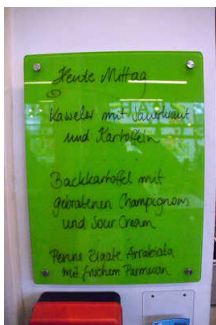 Heute Mittag
Kassler mit Sauerkraut
und Kartoffeln
Backkartoffel mit
gebratenen Champignons
und Sour Cream
Penne Rigate Arrabiata
mit frischem Parmesan